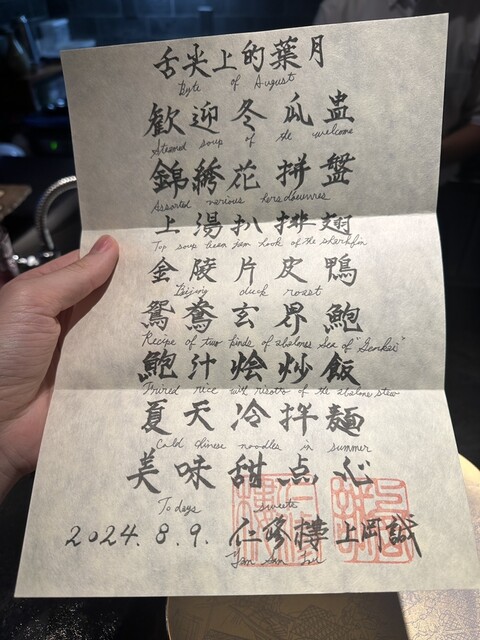 舌尖上的葉月
Byte of August
歓迎冬瓜盅
Steamed soup of the welcome
錦繍花拼盤
Assorted various hors doeuvres
上湯扒排翅
Top soup of the sharkfin
金陵片皮鴨
Beijing duck roast
鴛鴦玄界鮑
Recipe of two kinds of abalones Sea of "Genkai"
鮑汁烩炒飯
rice with risotto of the abalone stew
夏天冷拌麺
Cold Chinese noodles in summer
美味甜点心
Todays sweets
2024.8.9. 仁修樓 上岡誠